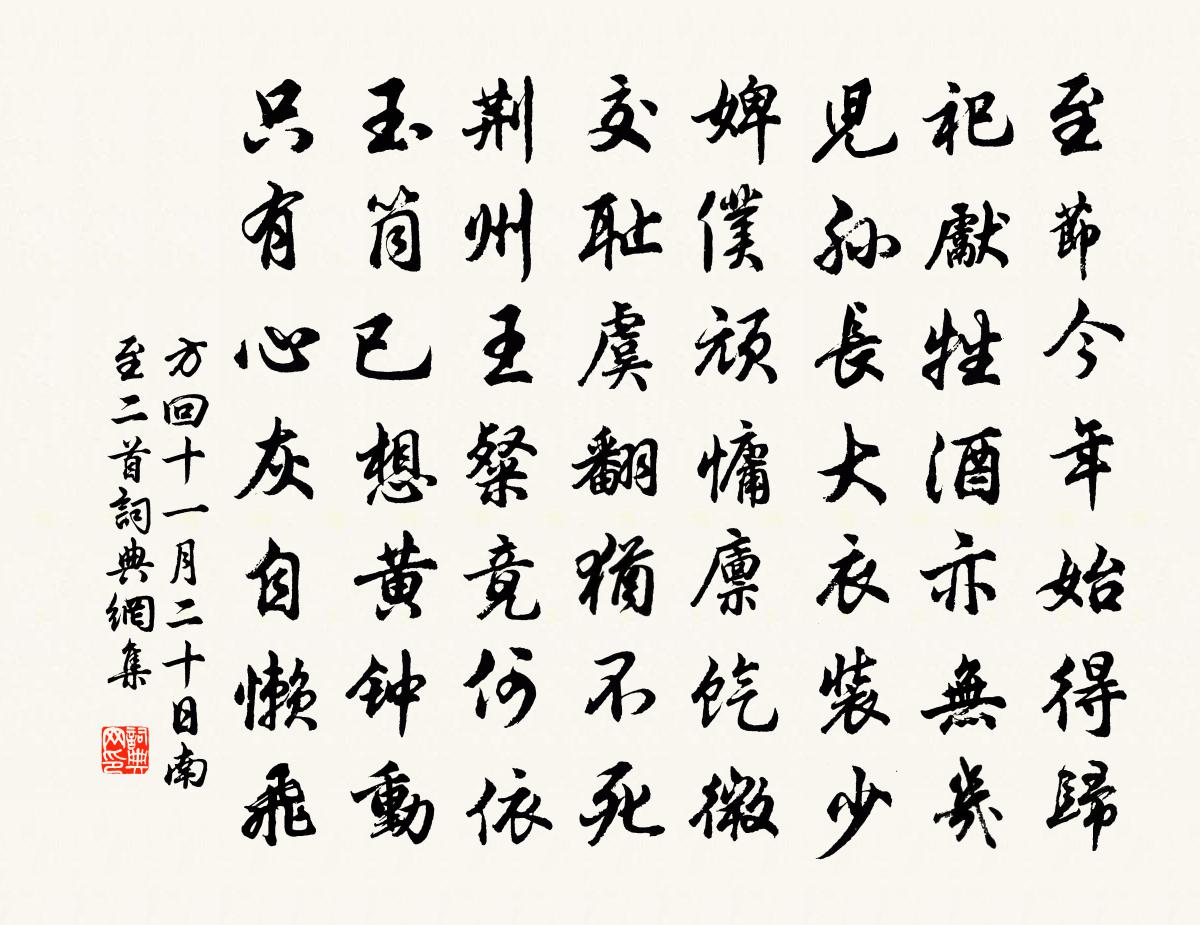 至節今年始得歸
祀獻牲酒亦無幾
兒孫長大衣裝少
婢僕頑慵廪饩微
交耻虞翻猶不死
荆州王粲竟何依
玉筒已想黄钟動
只有心灰自懒飛
方回十一月二十日南
至二首詞典網集
詞典网印